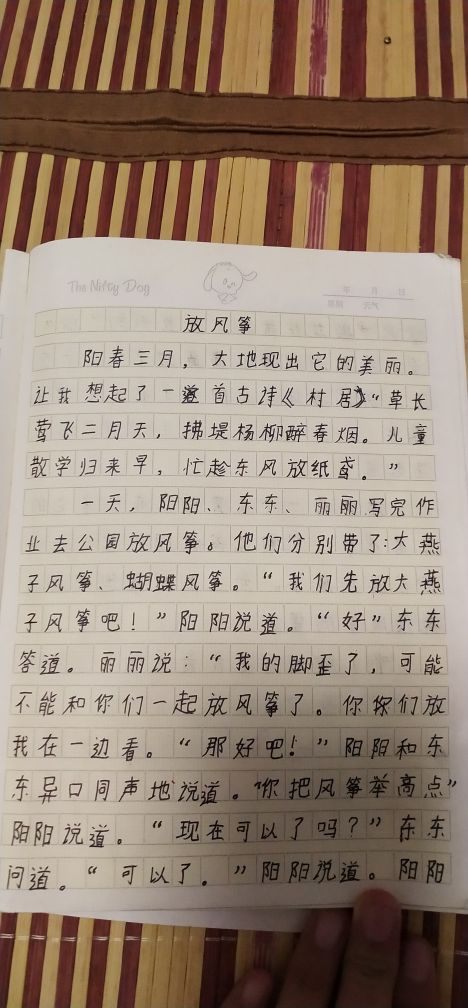 The Nifty Dog
年 月 日
星期 天气
放风筝
阳春三月，大地现出它的美丽。
让我想起了一首古诗《村居》“草长
莺飞二月天，拂堤杨柳醉春烟。儿童
散学归来早，忙趁东风放纸鸢。”
一天，阳阳、东东、丽丽写完作
业去公园放风筝。他们分别带了:大燕
子风筝、蝴蝶风筝。“我们先放大燕
子风筝吧！”阳阳说道。“好”东东
答道。丽丽说：“我的脚歪了，可能
不能和你们一起放风筝了。你们放
我在一边看。“那好吧！”阳阳和东
东异口同声地说道。“你把风筝举高点”
阳阳说道。“现在可以了吗？”东东
问道。“可以了。”阳阳说道。阳阳